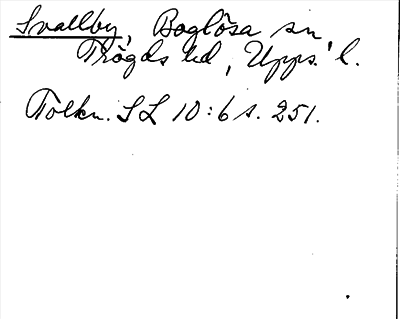 Svallby, Boglösa sn,
Trögds hd, Upps. l.
Tolkn. SL 10:6 s. 251.